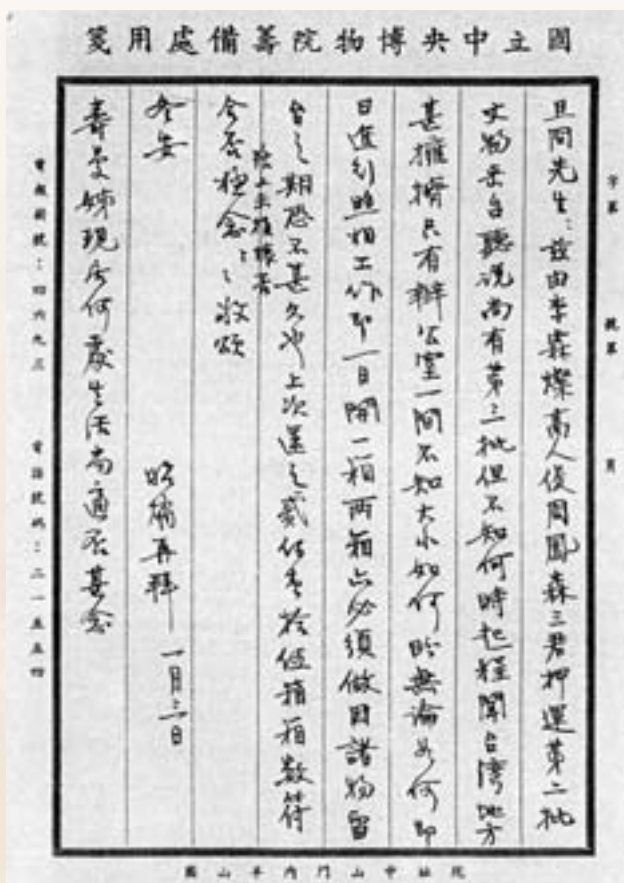 國立中央博物院籌備處用箋
字第　號第　頁
旦同先生：茲由李霖燦高人俊周鳳森三君押運第二批
文物來台聽說尚有第三批但不知何時起程聞台灣地方
甚擁擠只有辦公室一間不知大小如何昭無論如何即
日進行照相工作即一日開一箱兩箱亦必須做因諸物留
台之期恐不甚久也上次運之貳佰 於 箱箱數符
合否極念之 頌
途上未損壞否
冬安
昭燏再拜 一月三日
壽曼姊現居何處生活尚適否甚念
電報掛號：四六九三　電話號碼：二一五五四
院址中山門內半山園